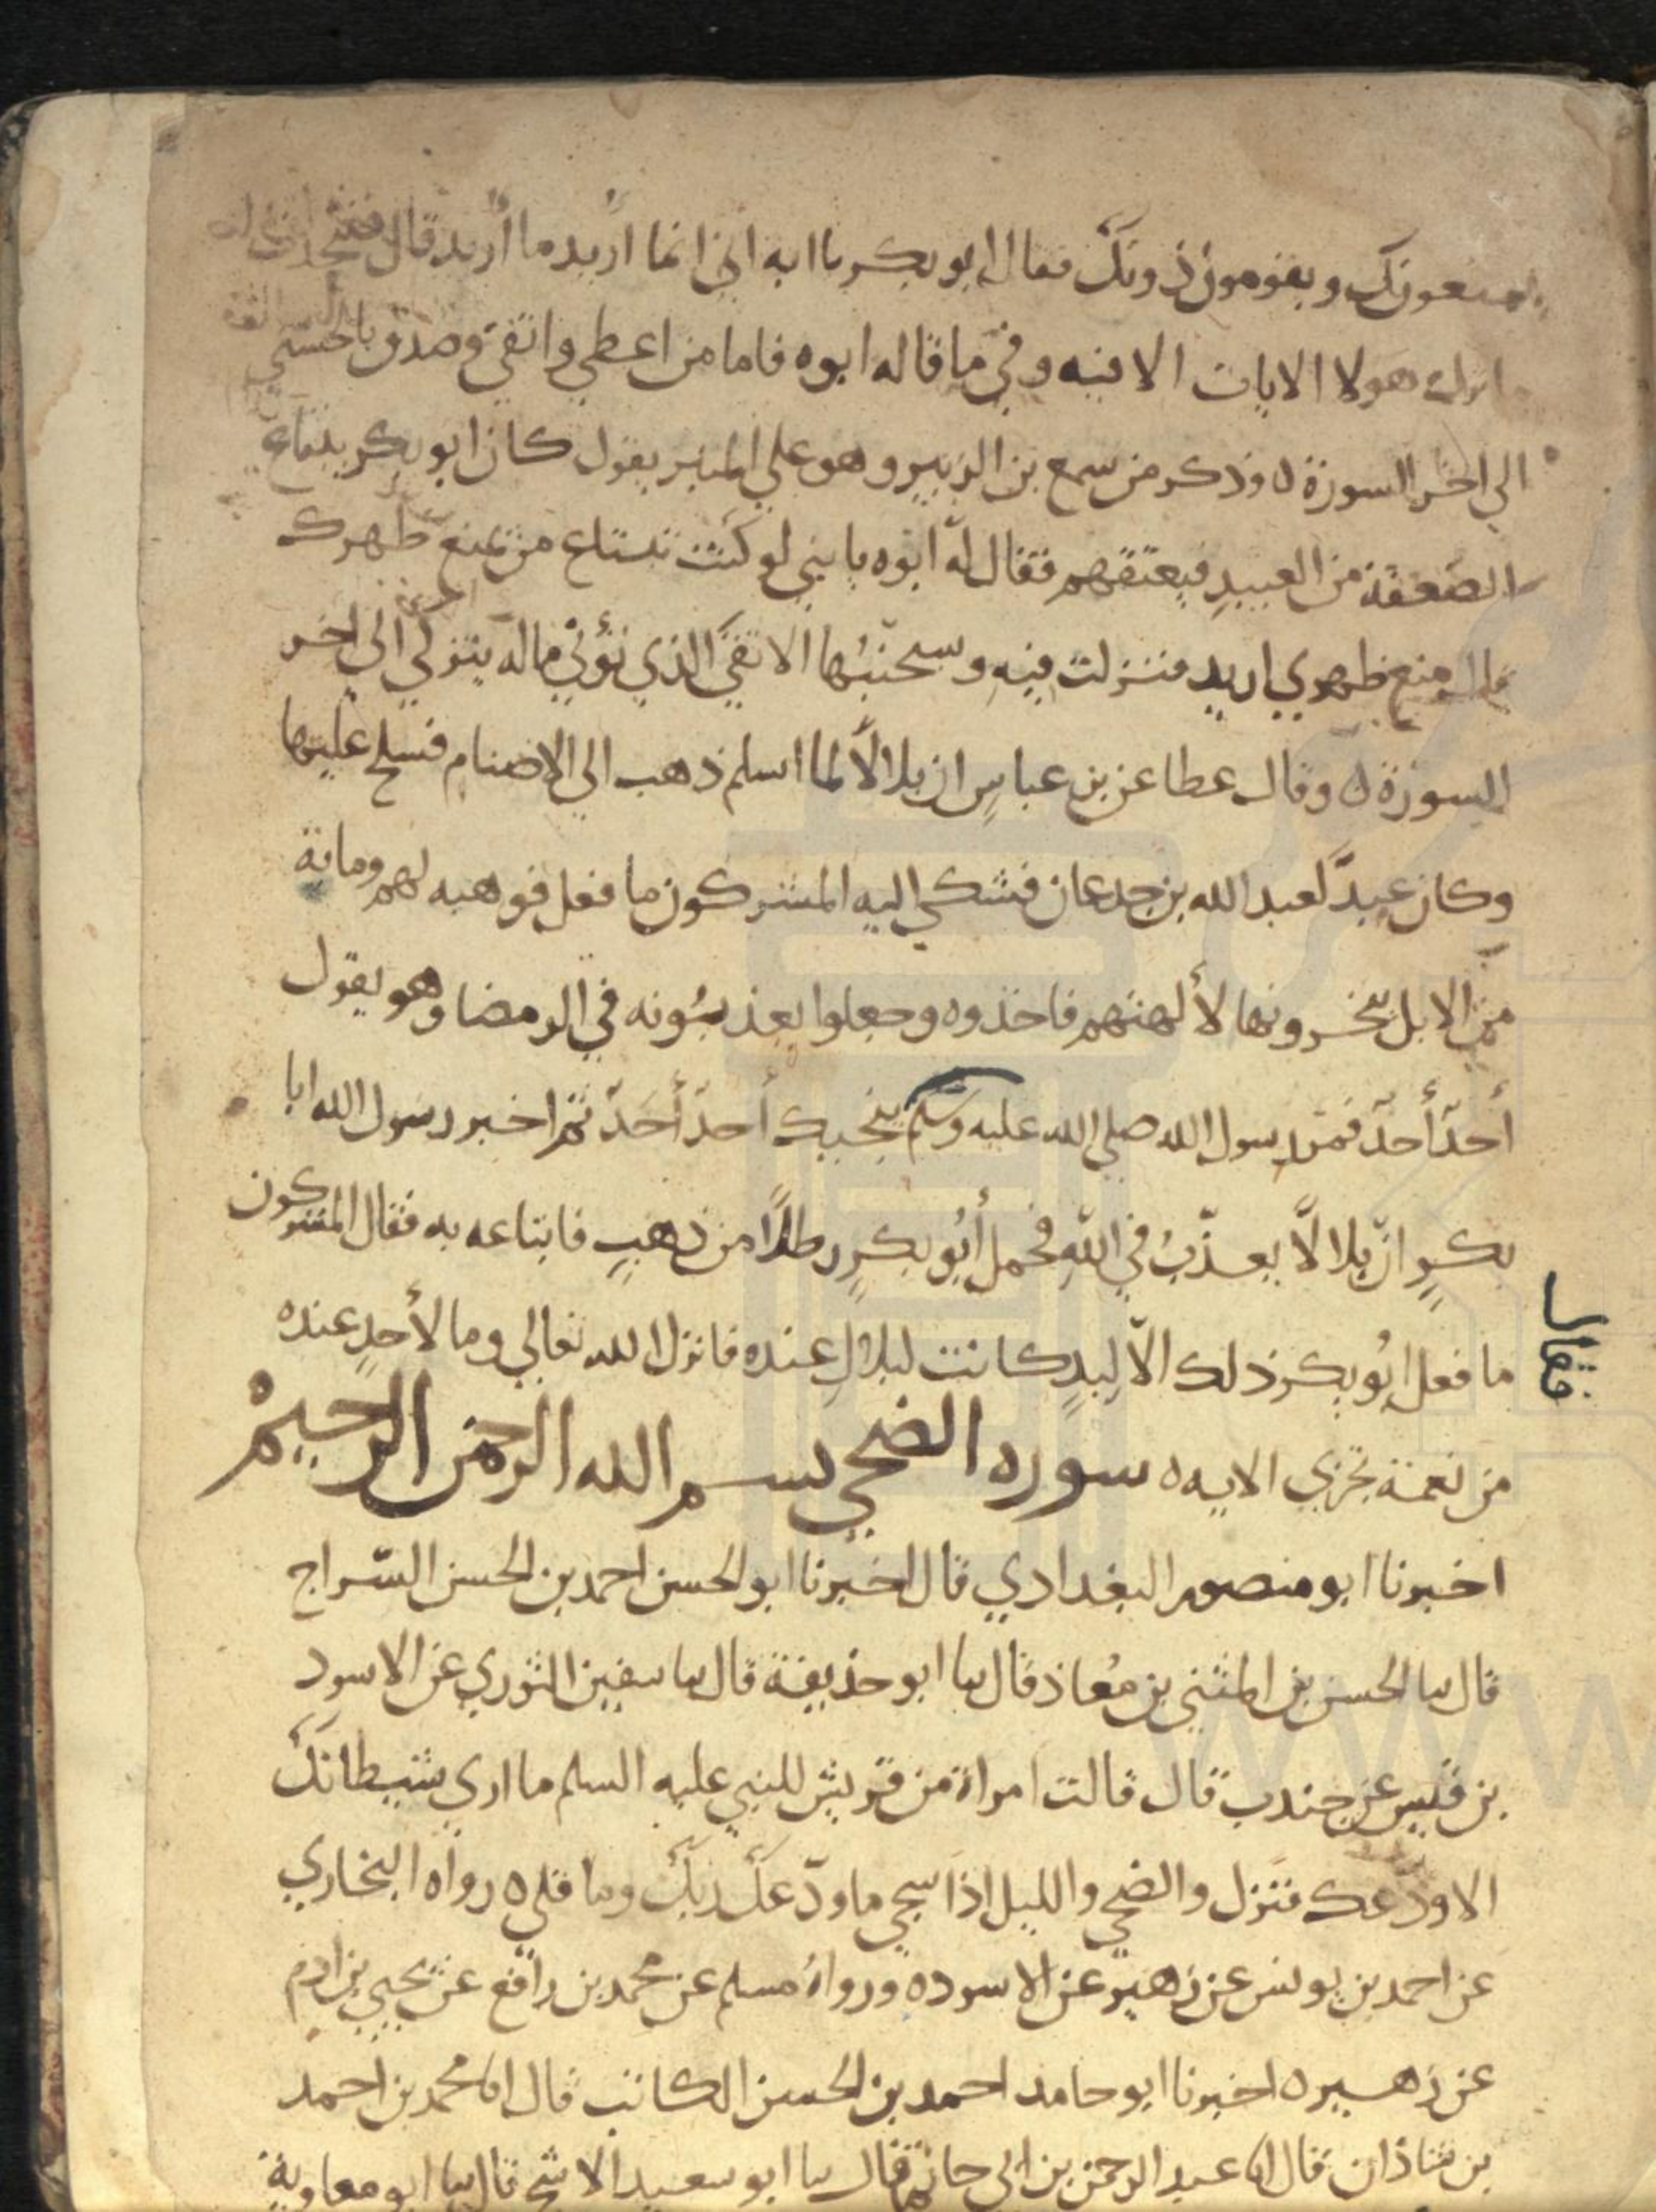 يمنعونك ويقومون دونك فقال ابو بكر يا ابه اني انما اريد ما اريد قال فتحدث
ما انزل هولا الايات الا فيه وفي ما قاله ابوه فاما من اعطي واتقي وصدق بالحسني
الي اخر السورة ه وذكر من سمع بن الزبير وهو علي المنبر يقول كان ابو بكر يبتاع
الضعفة من العبيد فيعتقهم فقال له ابوه يا بني لو كنت تبتاع من يمنع ظهرك
قال منع ظهري اريد فنزلت فيه وسيجنبها الاتقي الذي يؤتي ماله يتزكي الي اخر
السورة ه وقال عطا عن بن عباس ان بلالا لما اسلم ذهب الي الاصنام فسلح عليها
وكان عبدَ لعبد الله بن جدعان فشكي اليه المشركون ما فعل فوهبه لهم وماية
من الابل ينحرونها لألهتهم فاخذوه وجعلوا يعذبونه في الرمضا وهو يقول
أحدٌ أحدٌ فمر رسول الله صلي الله عليه وسلم ينجيك أحدٌ أحدٌ ثم اخبر رسول الله ابا
بكرٍ انّ بلالًا يعذّبُ في اللّهِ فحمل أبُو بكرٍ رطلًا من ذهبٍ فابتاعه به فقال المشركون
ما فعل ابُو بكر ذلك الّا ليدٍ كانت لبلالٍ عنده فانزل الله تعالي وما لأحدٍ عنده
فقال
من نعمة تجزي الايه ه سوره الضحي بسم الله الرحمن الرحيم
اخبرنا ابو منصور البغدادي قال اخبرنا ابو الحسن احمد بن الحسن السّراج
قال سا الحسن بن المثني بن مُعاذ قال سا ابو حذيفة قال سا سفين الثوري عن الاسود
بن قيس عن جندب قال قالت امراة من قريش للنبي عليه السلم ما اري شيطانك
الا ودّعك فنزل والضحي والليل اذا سجي ما ودّعك ربك وما قلي ه رواه البخاري
عن احمد بن يونس عن زهير عن الاسود ه ورواهُ مسلم عن محمد بن رافع عن يحيي بن ادم
عن زهير ه اخبرنا ابو حامد احمد بن الحسن الكاتب قال انا محمد بن احمد
بن شاذان قال انا عبد الرحمن بن ابي حاتم قال سا ابو سعيد الاشج قال سا ابو معاوية